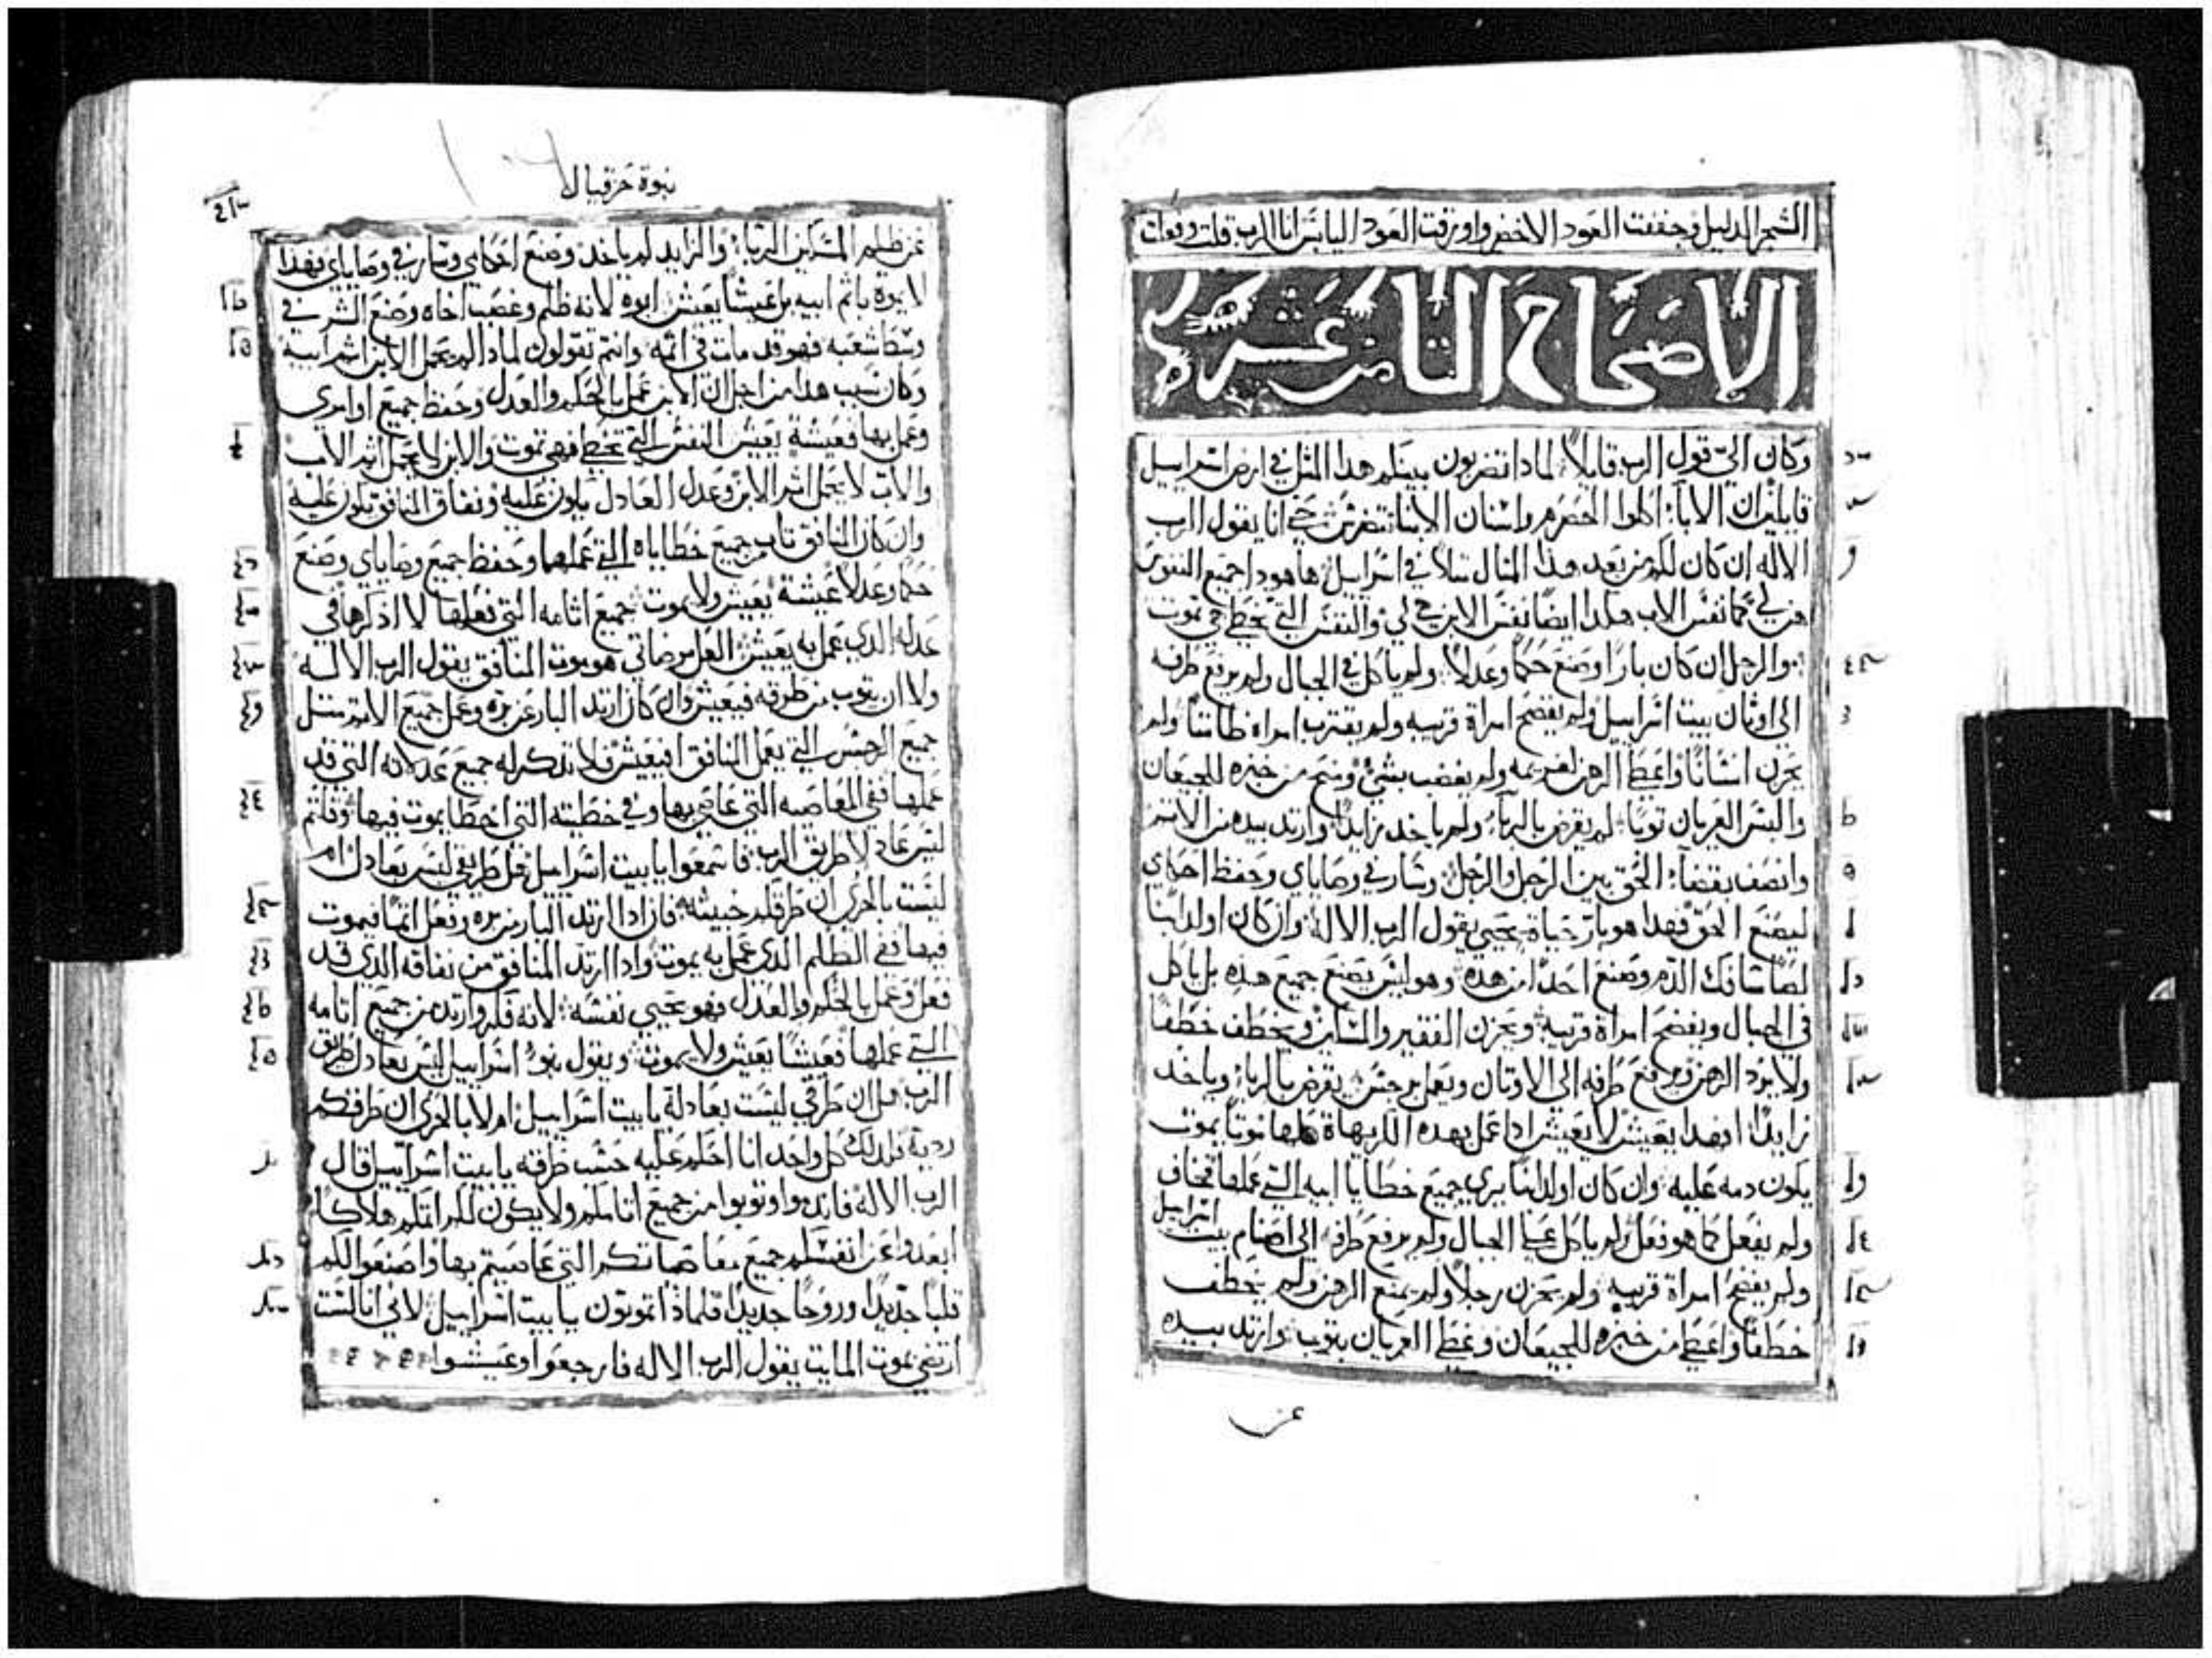 الشجر الدليل وجففت العود الاخضر واورقت العود اليابس انا الرب قلت وفعلت
الاصحاح الثامن عشر
وكان اليّ قول الرب قايلاً لمادا تضربون بينكم هدا المثل في ارض اسراييل
قايلين ان الابآ اكلوا الحصرم واسنان الابنا تتضرس حي انا يقول الرب
الاله ان كان لكم من بعد هدا المثال مثلاً في اسراييل ها هودا جميع النفوس
هن لي كما نفس الاب هكدا ايضاً نفس الابن هي لي والنفس التي تخطي هي تموت
والرجل ان كان باراً وصنع حكماً وعدلاً ولم ياكل في الجبال ولم يرفع طرفه
الى اوثان بيت اسراييل ولم يفضح امراة قريبه ولم يقترب امراة طامثاً ولم
يحزن انساناً واعطا الرهن لغريمه ولم يغضب بشئ وشبع من خبزه للجيعان
والبس العريان توباً لم يقرض بالربآ ولم ياخد زايداً وارتد بيده من الاتم
وانصف بقضآ الحق بين الرجل والرجل وسار في وصاياي وحفظ احكامي
ليصنع الحق فهدا هو بار حياة يحيي يقول الرب الاله وان كان اولد ابناً
لصاً سافك الدم وصنع احداً من هده وهو ليس يصنع جميع هده بل ياكل
في الجبال ويفضح امراة قريبه ويحزن الفقير والمسكين ويخطف خطفاً
ولا يرد الرهن ويرفع طرفه الى الاوثان ويعمل رجس يقرض بالربا وياخد
زايداً افهدا يعيش لا يعيش ادا عمل بهده الكريهاة كلها موتاً يموت
يكون دمه عليه وان كان اولد ابناً يري جميع خطايا ابيه التي عملها فخاف
ولم يفعل كما هو فعل ولم ياكل على الجبال ولم يرفع طرفه الى اصنام بيت اسراييل
ولم يفضح امراة قريبه ولم يحزن رجلاً ولم يمنع الرهن ولم يخطف
خطفاً واعطي من خبزه للجيعان وغطا العريان بتوب وارتد بيده
عن
نبوة حزقيال
عن ظلم المسكين الربا والزايد لم ياخد وصنع احكامي وسار في وصاياي فهدا
لا يموة باثم ابيه بل عيشاً يعيش ابوه لانه ظلم وغصب اخاه وصنع الشر في
وسط شعبه فهو قد مات في اثمه وانتم تقولون لمادا لم يحمل الابن اثم ابيه
وكان سبب هدا من اجل ان الابن عمل بالحكم والعدل وحفظ جميع اوامري
وعمل بها فعيشة يعيش النفس التي تخطي فهي تموت والابن لا يحمل اثم الاب
والاب لا يحمل اثم الابن وعدل العادل يكون عليه ونفاق المنافق يكون عليه
وان كان المنافق تاب جميع خطاياه التي عملها وحفظ جميع وصاياي وصنع
حكماً وعدلاً عيشة يعيش ولا يموت جميع اثامه التي فعلها لا ادكرها في
عدله الدي عمل به يعيش العل مرضاتي هو موت المنافق يقول الرب الاله
ولا ان يتوب من طرقه فيعيش وان كان ارتد البار عن بره وعمل جميع الاثم مثل
جميع الرجس التي يعمل المنافق افيعيش فلا تدكر له جميع عدلاته التي قد
عملها ففي المعاصيه التي عاصي بها وفي خطيته التي اخطا يموت فيها وقلتم
ليس عادلا طريق الرب فاسمعوا يا بيت اسراييل هل طريقي ليس بعادل ام
ليست بالحري ان طرقكم خبيثه فادا ارتد البار من بره وفعل اثماً فيموت
فيها ففي الظلم الدي عمل به يموت وادا ارتد المنافق من نفاقه الدي قد
فعل وعمل بالحكم والعدل فهو يحيي نفسه لانه فكر وارتد من جميع اثامه
التي عملها فعيشاً يعيش ولا يموت ويقول بنو اسراييل ليس بعادل طريق
الرب هل ان طرقي ليست بعادلة يا بيت اسراييل ام لا بالحري ان طرقكم
ردية فلدلك كل واحد انا احكم عليه حسب طرقه يا بيت اسراييل قال
الرب الاله فاندموا وتوبوا من جميع اثامكم ولا يكون لكم اثمكم هلاكاً
ابعدوا عن انفسكم جميع معاصاتكم التي عاصيتم بها واصنعوا لكم
قلباً جديداً وروحاً جديداً فلماذا تموتون يا بيت اسراييل لاني انا لست
ارتضي بموت المايت يقول الرب الاله فارجعوا وعيشوا